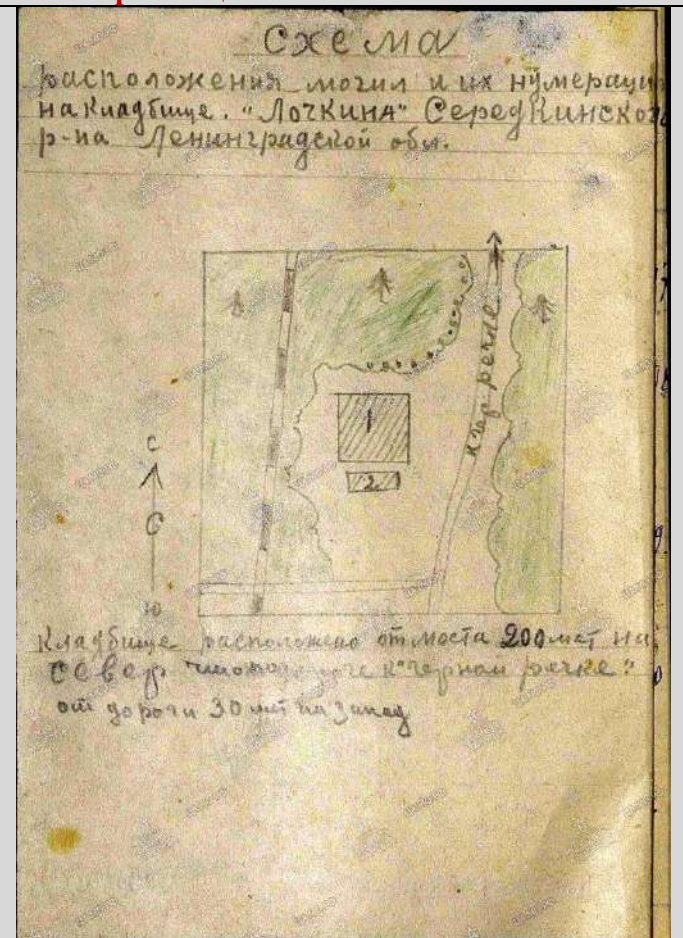 Схема
расположения могил и их нумерации
на кладбище. "Лочкина" Середкинского
р-на Ленинградской обл.
1
2
С
Ю
Кладбище расположено от моста 200 мет на
север дороге к "черном речке"
от дороги 30 мет на запад